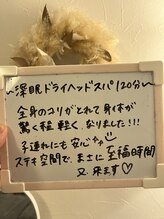 ~深眠ドライヘッドスパ120分~
全身のコリがとれて身体が
驚く程 軽く なりました!!!
子連れにも 安心
ステキ空間で、まさに至福時間
又 来ます♡